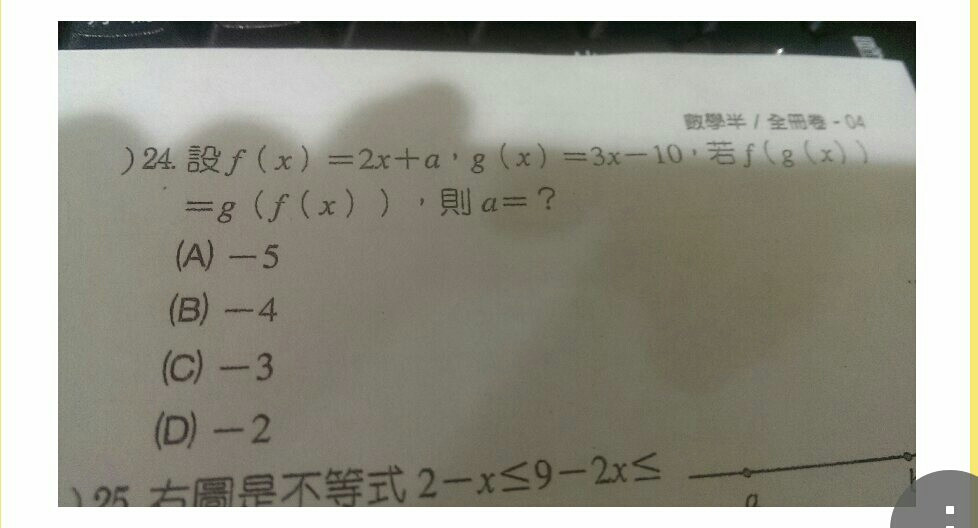 數學半 / 全冊卷 - 04
) 24. 設 f ( x ) =2x+a,g ( x ) =3x-10,若 f ( g ( x ) )
=g ( f ( x ) ),則 a=?
(A) -5
(B) -4
(C) -3
(D) -2
) 25. 右圖是不等式 2-x≤9-2x≤
a